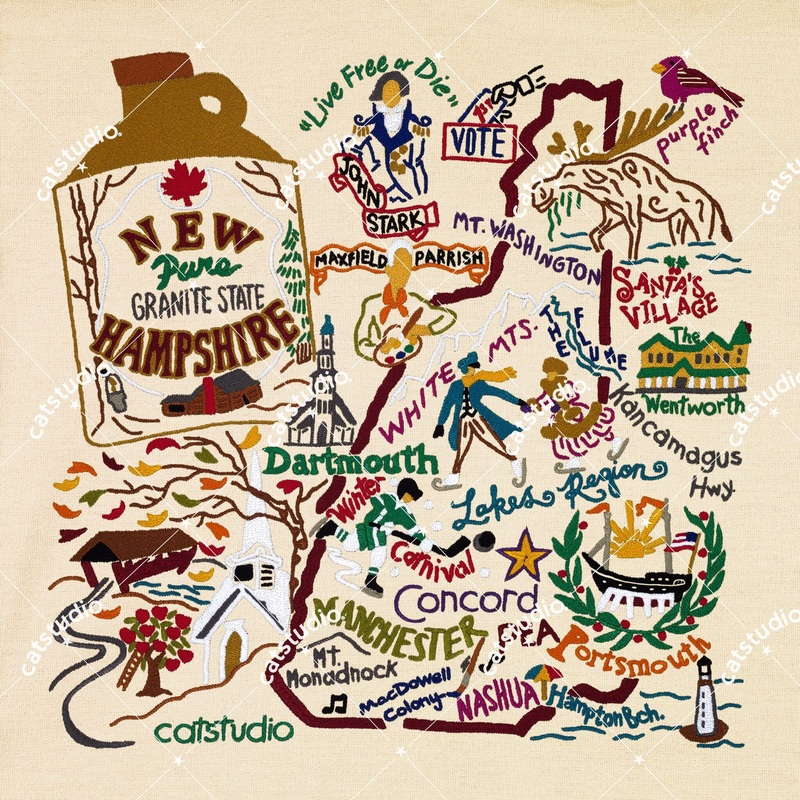 "Live Free or Die"
VOTE
purple
finch
JOHN
STARK
MT. WASHINGTON
NEW
Pure
GRANITE STATE
HAMPSHIRE
MAXFIELD PARRISH
SANTA'S
VILLAGE
THE FLUME
WHITE MTS.
The
Wentworth
Kancamagus
Hwy.
Dartmouth
Lakes Region
Winter
Carnival
Concord
MANCHESTER
Portsmouth
Mt.
Monadnock
MacDowell
Colony
NASHUA
Hampton Bch.
catstudio